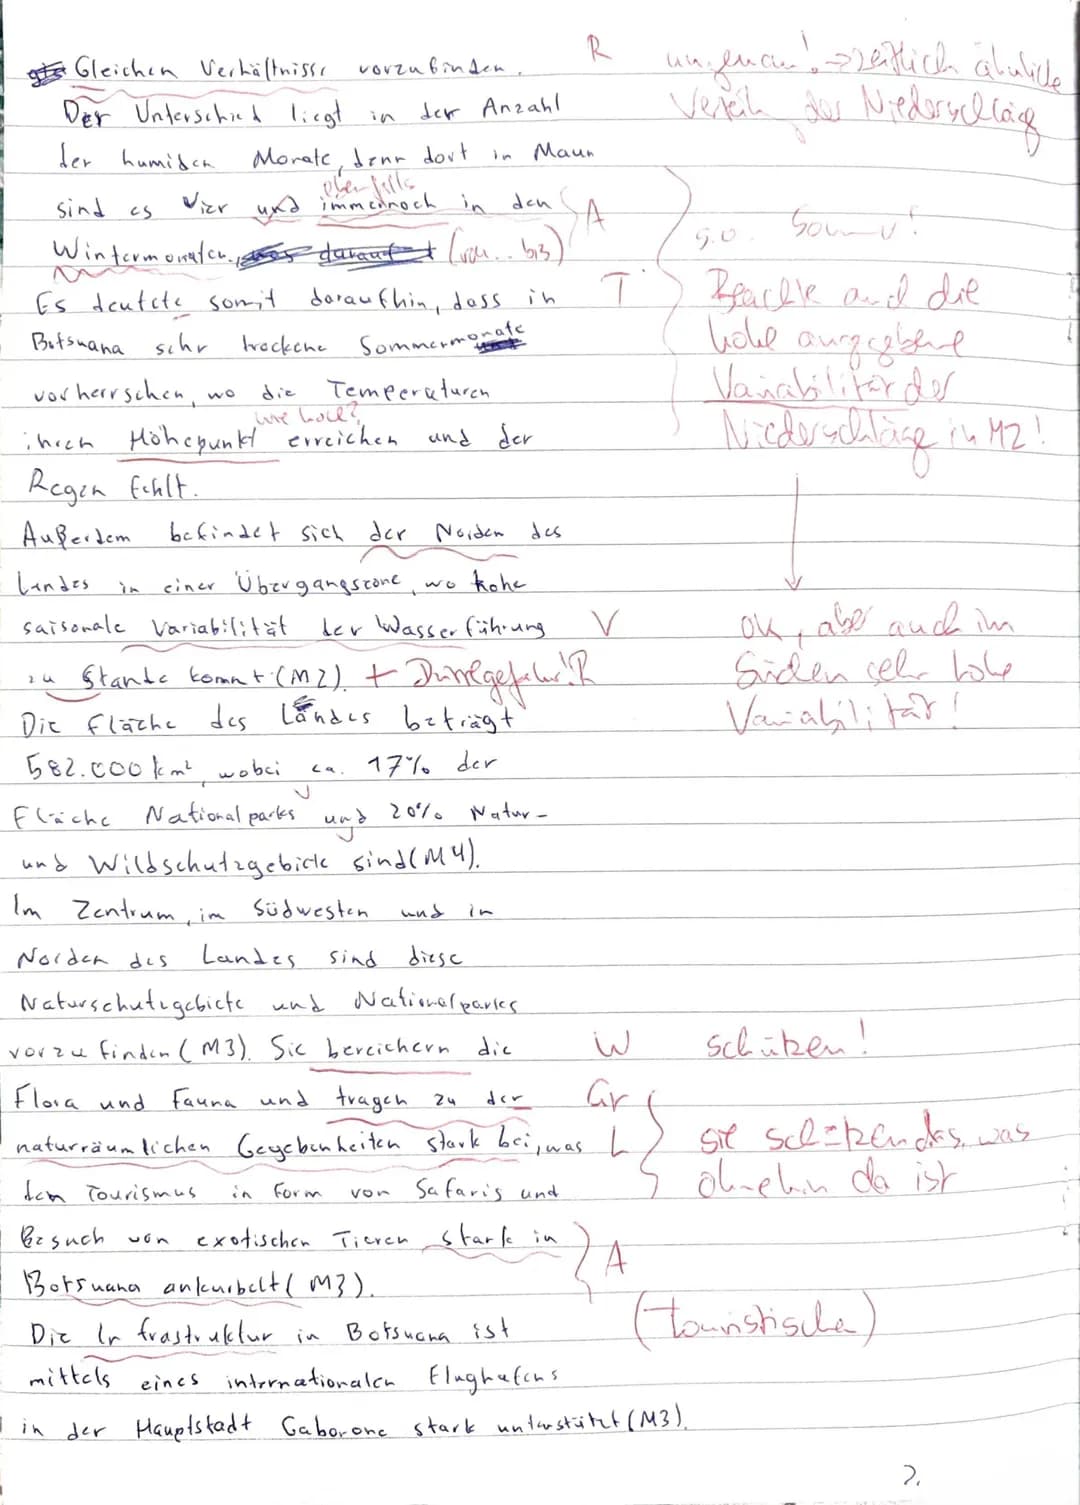 Gleichen Verhältnisse vorzufinden. R ungenau! → zeitlich ähnliche
Der Unterschied liegt in der Anzahl Verteil. der Niederschläge
der humiden Monate, denn dort in Maun
ebenfalls
sind es Vier und immernoch in den A s.o. Sommer!
Wintermonaten. darauf (von.. bis)
Es deutete somit daraufhin, dass in T Beachte auch die
Botsuana sehr trockene Sommermonate hohe angegebene
vorherrschen, wo die Temperaturen Variabilität der
wie hoch?
ihren Höhepunkt erreichen und der Niederschläge in M2!
Regen fehlt.
Außerdem befindet sich der Norden des
Landes in einer Übergangszone, wo hohe
saisonale Variabilität der Wasserführung V ok, aber auch im
zu Stande kommt (M2). + Dürregefahr! R Süden sehr hohe
Die Fläche des Landes beträgt Variabilität!
582.000 km², wobei ca. 17% der
Fläche Nationalparks und 20% Natur-
und Wildschutzgebiete sind (M4).
Im Zentrum, im Südwesten und in
Norden des Landes sind diese
Naturschutzgebiete und Nationalparks
vorzufinden (M3). Sie bereichern die W schützen!
Flora und Fauna und tragen zu der Gr
naturräumlichen Gegebenheiten stark bei, was L sie schützen das, was
dem Tourismus in Form von Safaris und ohnehin da ist
Besuch von exotischen Tieren stark in A
Botsuana ankurbelt (M3).
Die Infrastruktur in Botsuana ist (touristische)
mittels eines internationalen Flughafens
in der Hauptstadt Gaborone stark unterstützt (M3).
2.